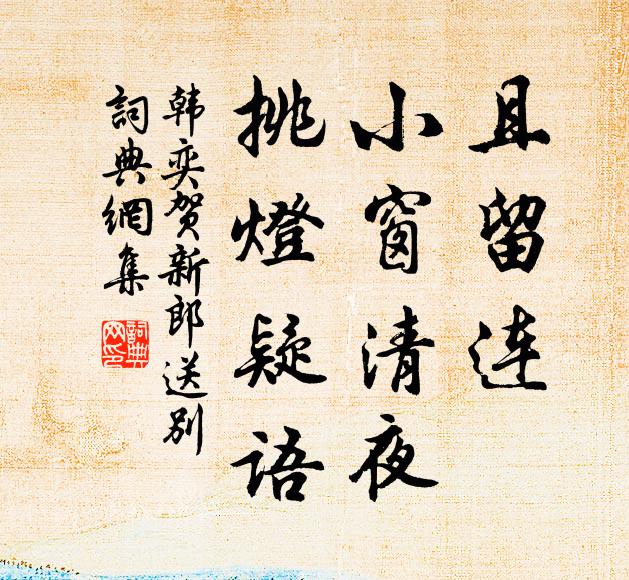 且留连
小窗清夜
挑燈疑语
韩奕贺新郎送别
詞典網集
詞典網印